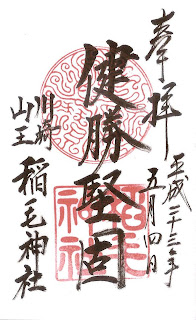 奉拝
平成二十三年
五月四日
健勝堅固
川崎
山王
稲毛神社
稲毛
神社